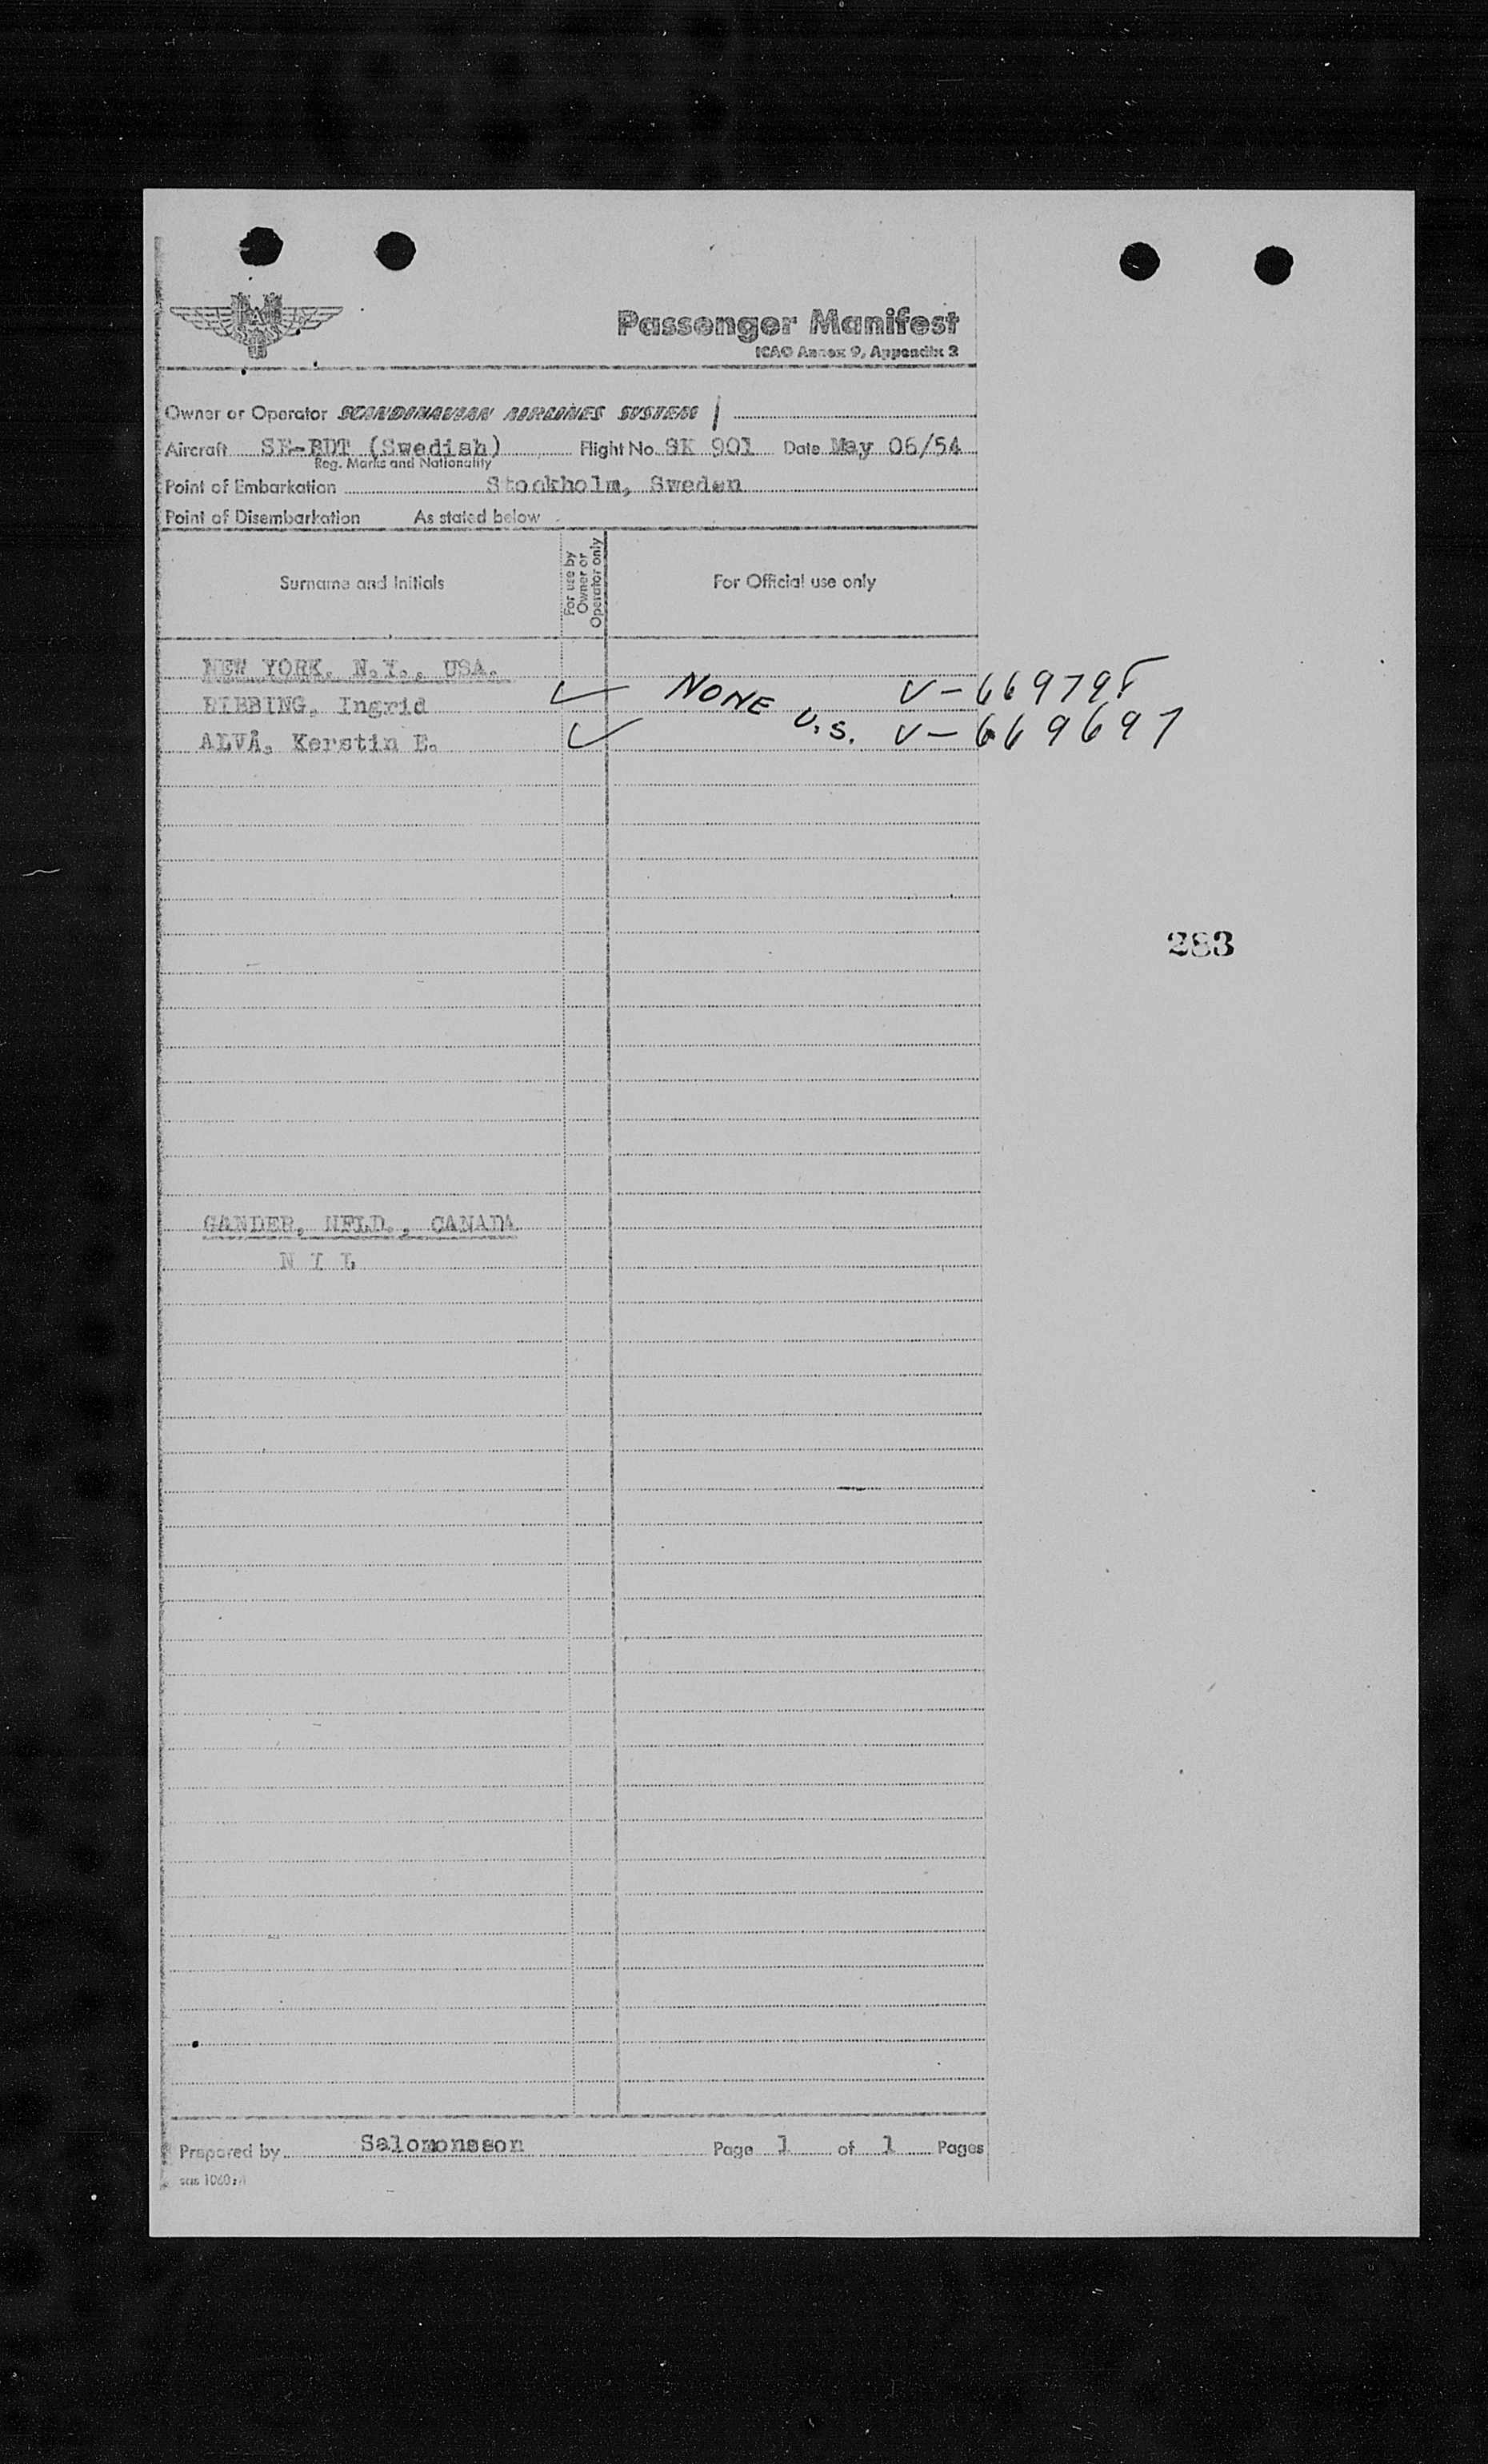 Passenger Manifest
ICAO Annex 9, Appendix 2
Owner or Operator SCANDINAVIAN AIRLINES SYSTEM
Aircraft SE-BDT (Swedish) Flight No. SK 901 Date May 06/54
Reg. Marks and Nationality
Point of Embarkation Stockholm, Sweden
Point of Disembarkation As stated below
Surname and Initials
For use by
Owner or
Operator only
For Official use only
NEW YORK, N.Y., USA.
Ingrid ✓ NONE
ALVÅ, Kerstin E. ✓ U.S. V-669697
283
GANDER, NFLD., CANADA
N I L
Prepared by Salomonsson Page 1 of 1 Pages